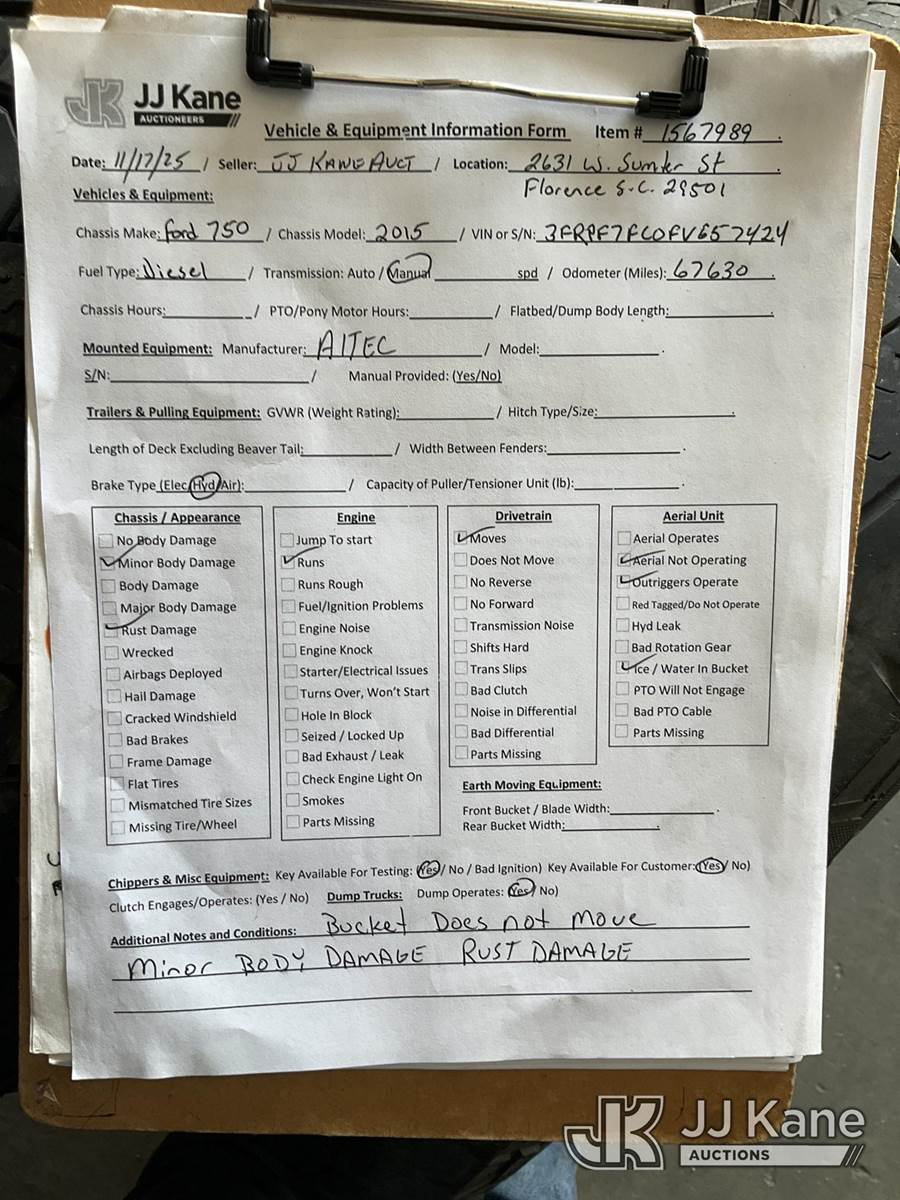 JJ Kane
AUCTIONEERS
Vehicle & Equipment Information Form Item # 1567989
Date: 11/17/25 / Seller: JJ KANE AUCT / Location: 2631 W. Sumter St
Florence S.C. 29501
Vehicles & Equipment:
Chassis Make: Ford 750 / Chassis Model: 2015 / VIN or S/N: 3FRPF7FC0FV657424
Fuel Type: Diesel / Transmission: Auto / Manual spd / Odometer (Miles): 67630
Chassis Hours: / PTO/Pony Motor Hours: / Flatbed/Dump Body Length:
Mounted Equipment: Manufacturer: AlTEC / Model:
S/N: / Manual Provided: (Yes/No)
Trailers & Pulling Equipment: GVWR (Weight Rating): / Hitch Type/Size:
Length of Deck Excluding Beaver Tail: / Width Between Fenders:
Brake Type (Elec/Hyd/Air): / Capacity of Puller/Tensioner Unit (lb):
Chassis / Appearance
No Body Damage
Minor Body Damage
Body Damage
Major Body Damage
Rust Damage
Wrecked
Airbags Deployed
Hail Damage
Cracked Windshield
Bad Brakes
Frame Damage
Flat Tires
Mismatched Tire Sizes
Missing Tire/Wheel
Engine
Jump To start
Runs
Runs Rough
Fuel/Ignition Problems
Engine Noise
Engine Knock
Starter/Electrical Issues
Turns Over, Won't Start
Hole In Block
Seized / Locked Up
Bad Exhaust / Leak
Check Engine Light On
Smokes
Parts Missing
Drivetrain
Moves
Does Not Move
No Reverse
No Forward
Transmission Noise
Shifts Hard
Trans Slips
Bad Clutch
Noise in Differential
Bad Differential
Parts Missing
Aerial Unit
Aerial Operates
Aerial Not Operating
Outriggers Operate
Red Tagged/Do Not Operate
Hyd Leak
Bad Rotation Gear
Ice / Water In Bucket
PTO Will Not Engage
Bad PTO Cable
Parts Missing
Earth Moving Equipment:
Front Bucket / Blade Width:
Rear Bucket Width:
Chippers & Misc Equipment: Key Available For Testing: (Yes / No / Bad Ignition) Key Available For Customer: (Yes / No)
Clutch Engages/Operates: (Yes / No) Dump Trucks: Dump Operates: (Yes / No)
Additional Notes and Conditions: Bucket Does not Move
Minor BODY DAMAGE RUST DAMAGE
JJ Kane
AUCTIONS